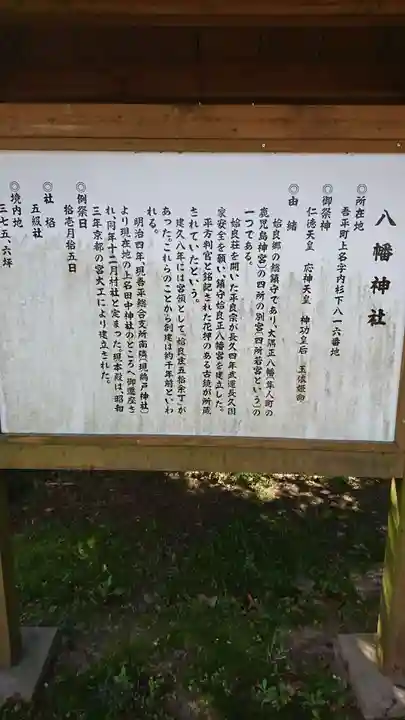 八幡神社
◎所在地
吾平町上名字内杉下八一六番地
◎御祭神
仁徳天皇 応神天皇 神功皇后 玉依姫命
◎由緒
姶良郷の総鎮守であり、大隅正八幡隼人町の
鹿児島神宮)の四所の別宮(四所若宮という)の
一つである。
姶良荘を開いた平良宗が長久四年武運長久国
家安全を願い、鎮守姶良正八幡宮を建立した。
平方判官と銘記された花押のある古鏡が所蔵
されていたという。
建久八年には宮領として、「姶良庄五拾余丁」が
あった。これらのことから創建は約千年前といわ
れる。
明治四年、現吾平総合支所南隣(現鵜戸神社)
より現在地の上名田中神社のところへ御遷座さ
れ、同年十二月村社と定まった。現本殿は、昭和
三年京都の宮大工により建立された。
◎例祭日
拾壱月拾五日
◎社格
五級社
◎境内地
三七五、六坪